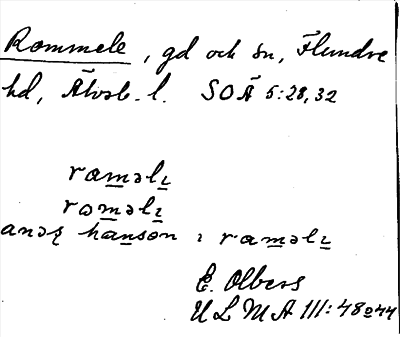 Rommele, gd och sn, Flundre
hd, Älvsb. l. SOÄ 5:28, 32
raməlı
raməlı
anəʂ hanson ı raməlı
E. Olbers
ULMA 111:48 o 44